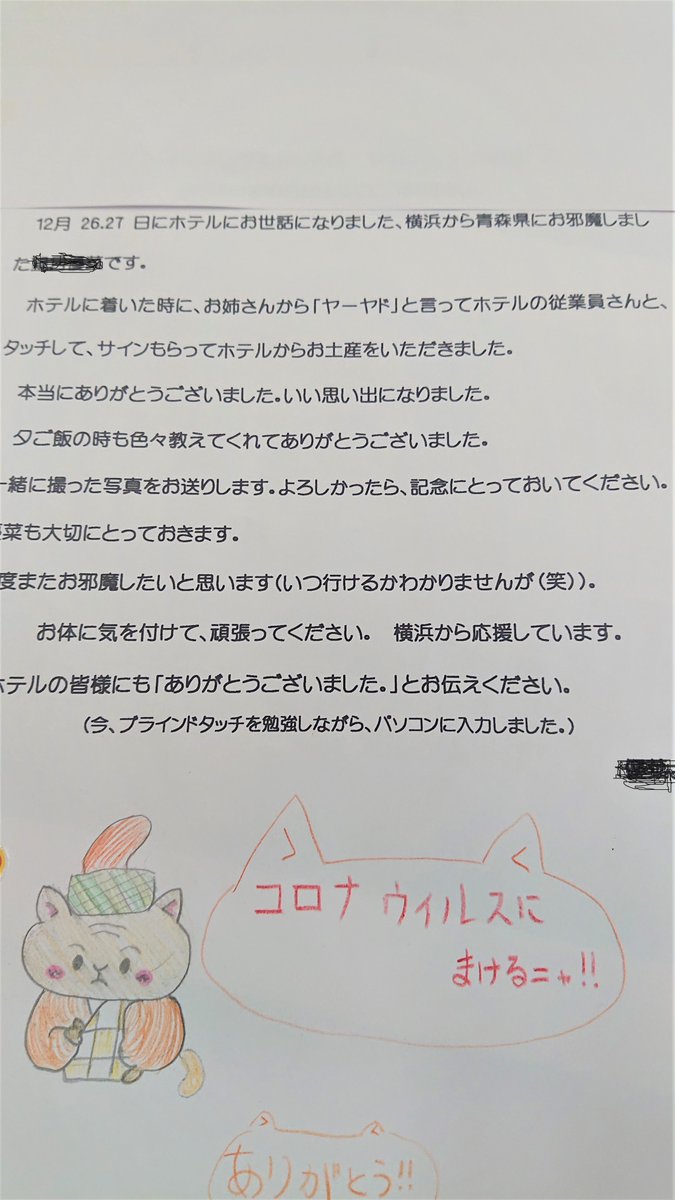 12月 26.27 日にホテルにお世話になりました、横浜から青森県にお邪魔しまし
た です。
ホテルに着いた時に、お姉さんから「ヤーヤド」と言ってホテルの従業員さんと、
タッチして、サインもらってホテルからお土産をいただきました。
本当にありがとうございました。いい思い出になりました。
夕ご飯の時も色々教えてくれてありがとうございました。
一緒に撮った写真をお送りします。よろしかったら、記念にとっておいてください。
菜も大切にとっておきます。
度またお邪魔したいと思います(いつ行けるかわかりませんが(笑))。
お体に気を付けて、頑張ってください。 横浜から応援しています。
ホテルの皆様にも「ありがとうございました。」とお伝えください。
(今、ブラインドタッチを勉強しながら、パソコンに入力しました。)
コロナウイルスに
まけるニャ!!
ありがとう!!